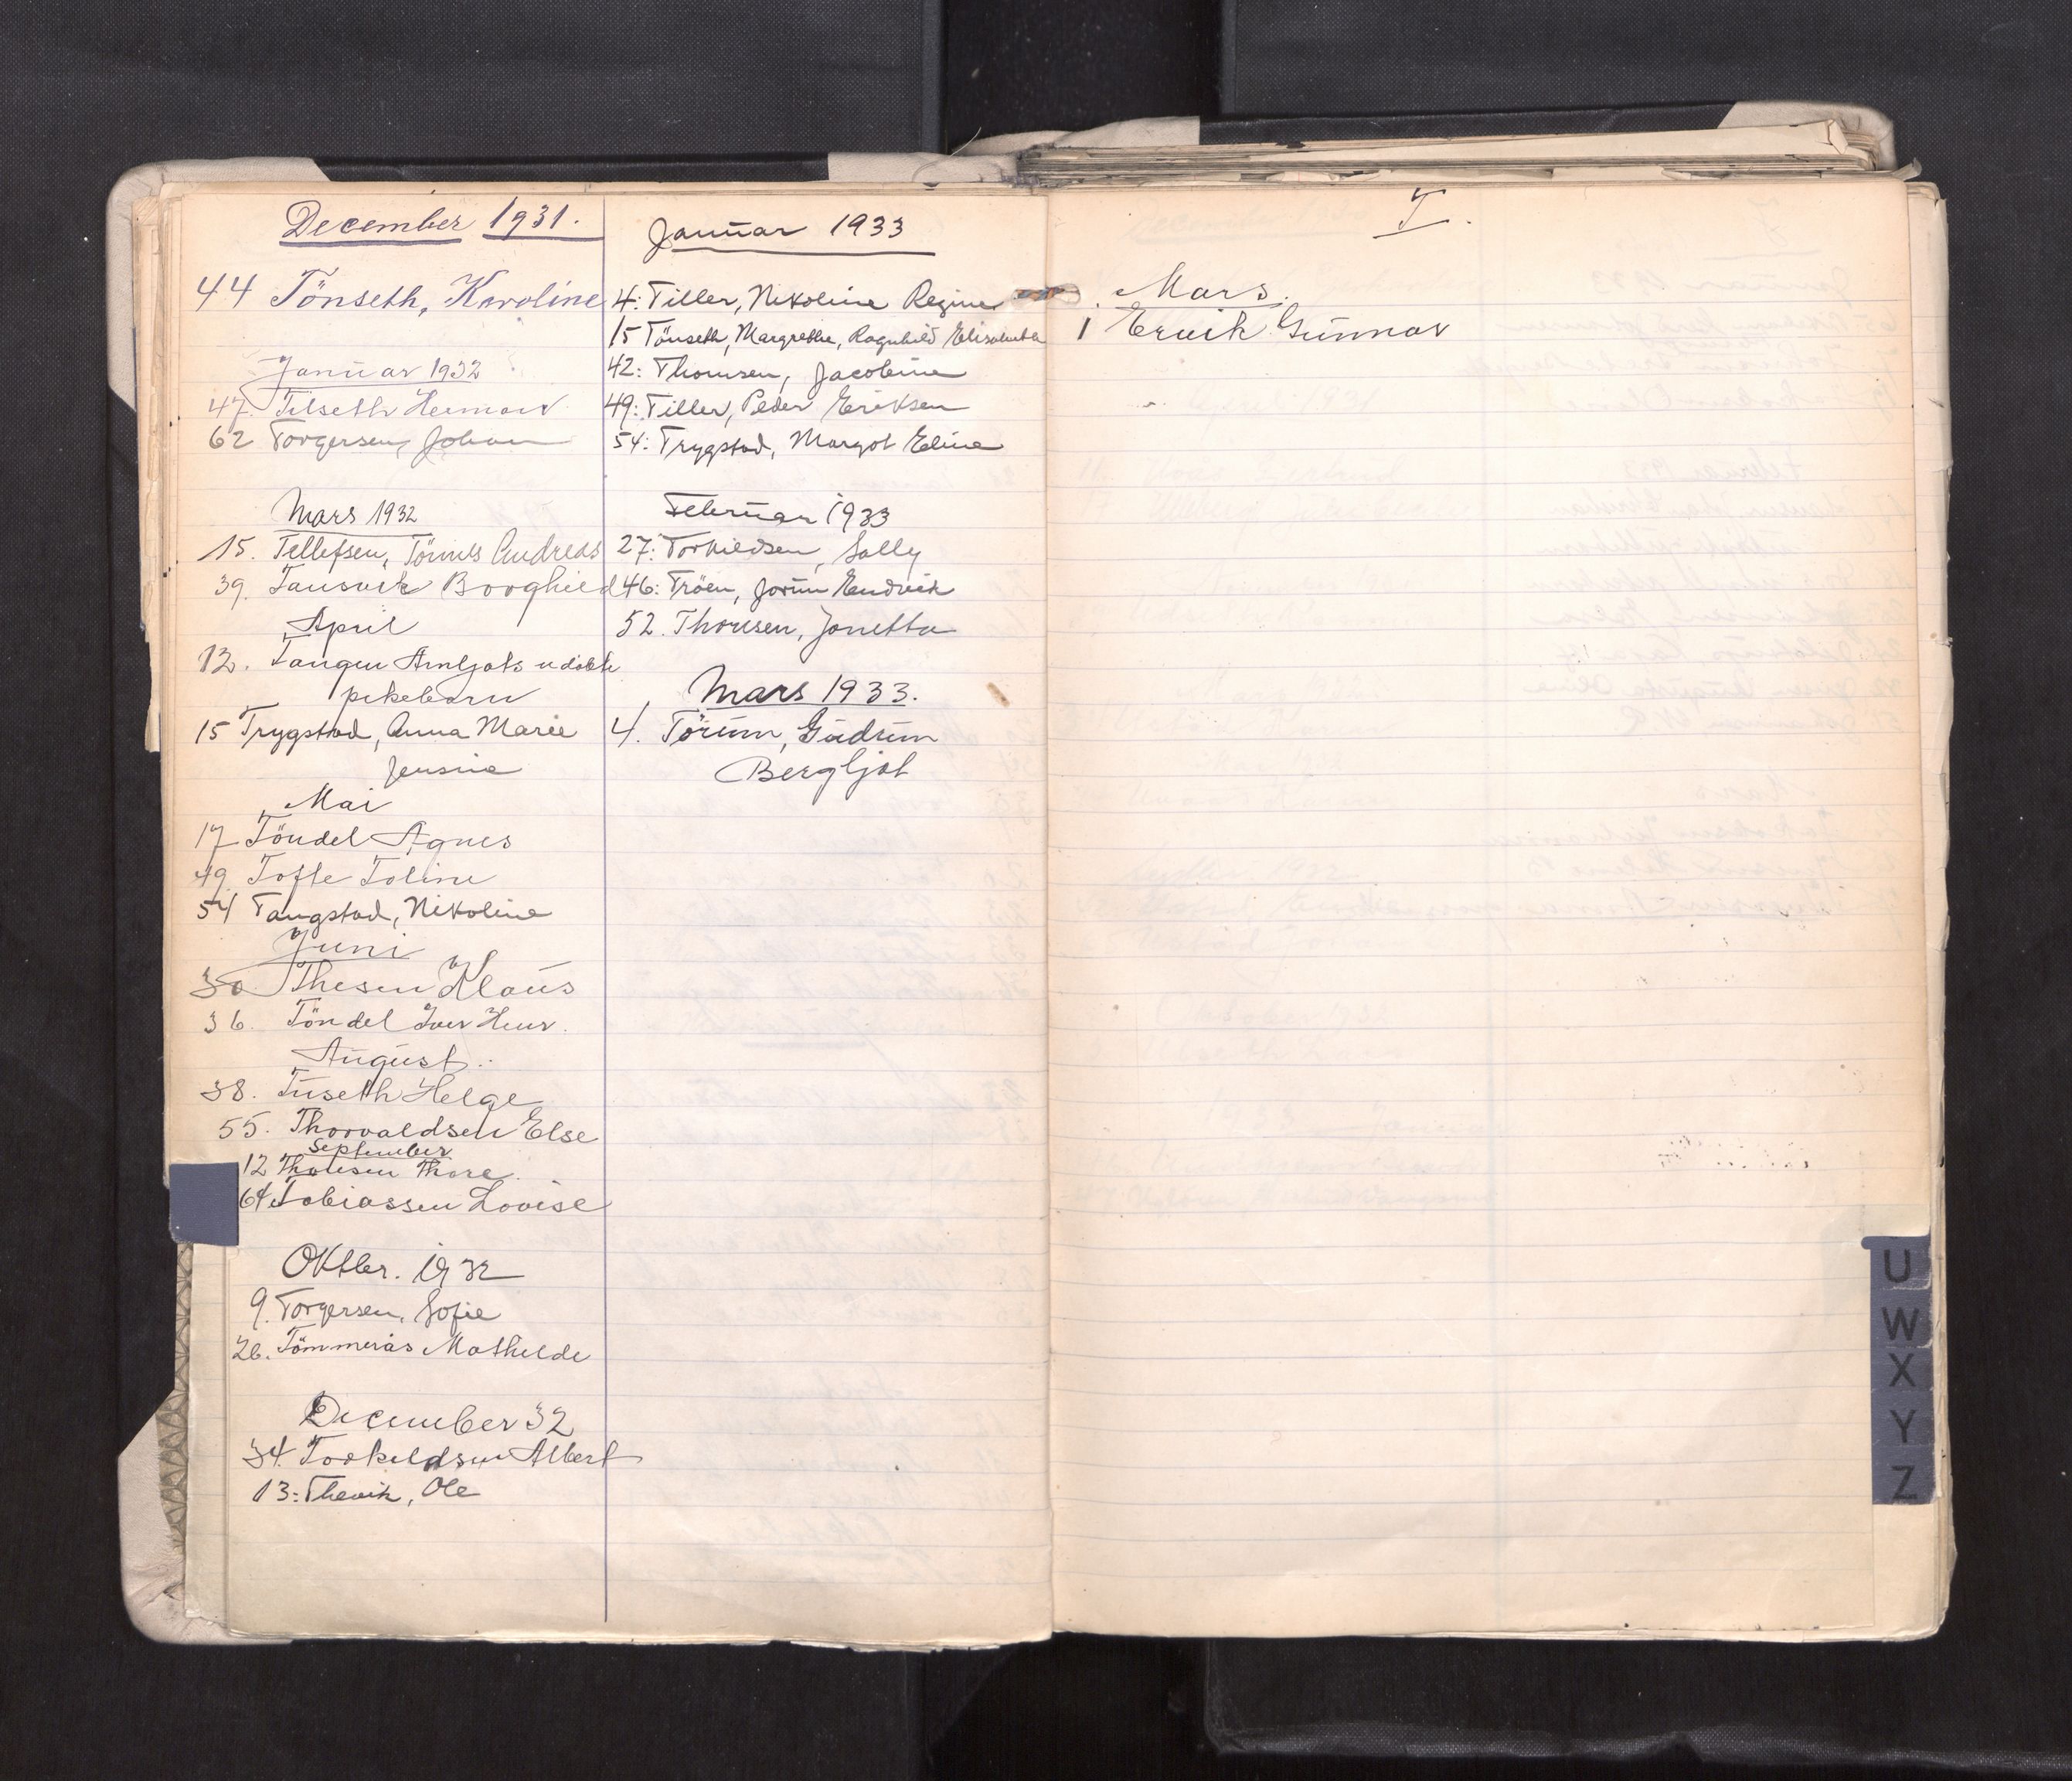 December 1931.
44 Tönseth, Karoline
Januar 1932
47. Tilseth Herman
62 Torgersen, Johan
Mars 1932
15. Tellefsen, Tönnes Andreas
39. Tansvik Borghild
April
12. Tangen Arnljots udöbte
pikebarn
15 Trygstad, Anna Marie
Jensine
Mai
17 Töndel Agnes
49. Tofte Toline
54 Tangstad, Nikoline
Juni
30 Thesen Klaus
36. Töndel Iver Henr.
August.
38. Tuseth Helge
55. Thorvaldsen Else
September
12 Thonsen Thore.
64 Tobiassen Lovise
Oktber. 1932
9. Torgersen, Sofie
26. Tömmerås Mathilde
December 32
34. Torkildsen Albert
13: Thevik, Ole
Januar 1933
4: Tiller, Nikoline Regine
15 Tönseth, Margrethe, Ragnhild Elisabeth
42: Thomsen, Jacobine
49: Tiller, Peder Eriksen
54: Trygstad, Margot Eline
Februar 1933
27: Torkildsen, Sally
46: Tröen, Jorun Hendrik
52. Thonsen, Jonetta
Mars 1933.
4. Törum, Gudrun
Bergljot
Mars.
1 Ervik Gunnar
U
W
X
Y
Z